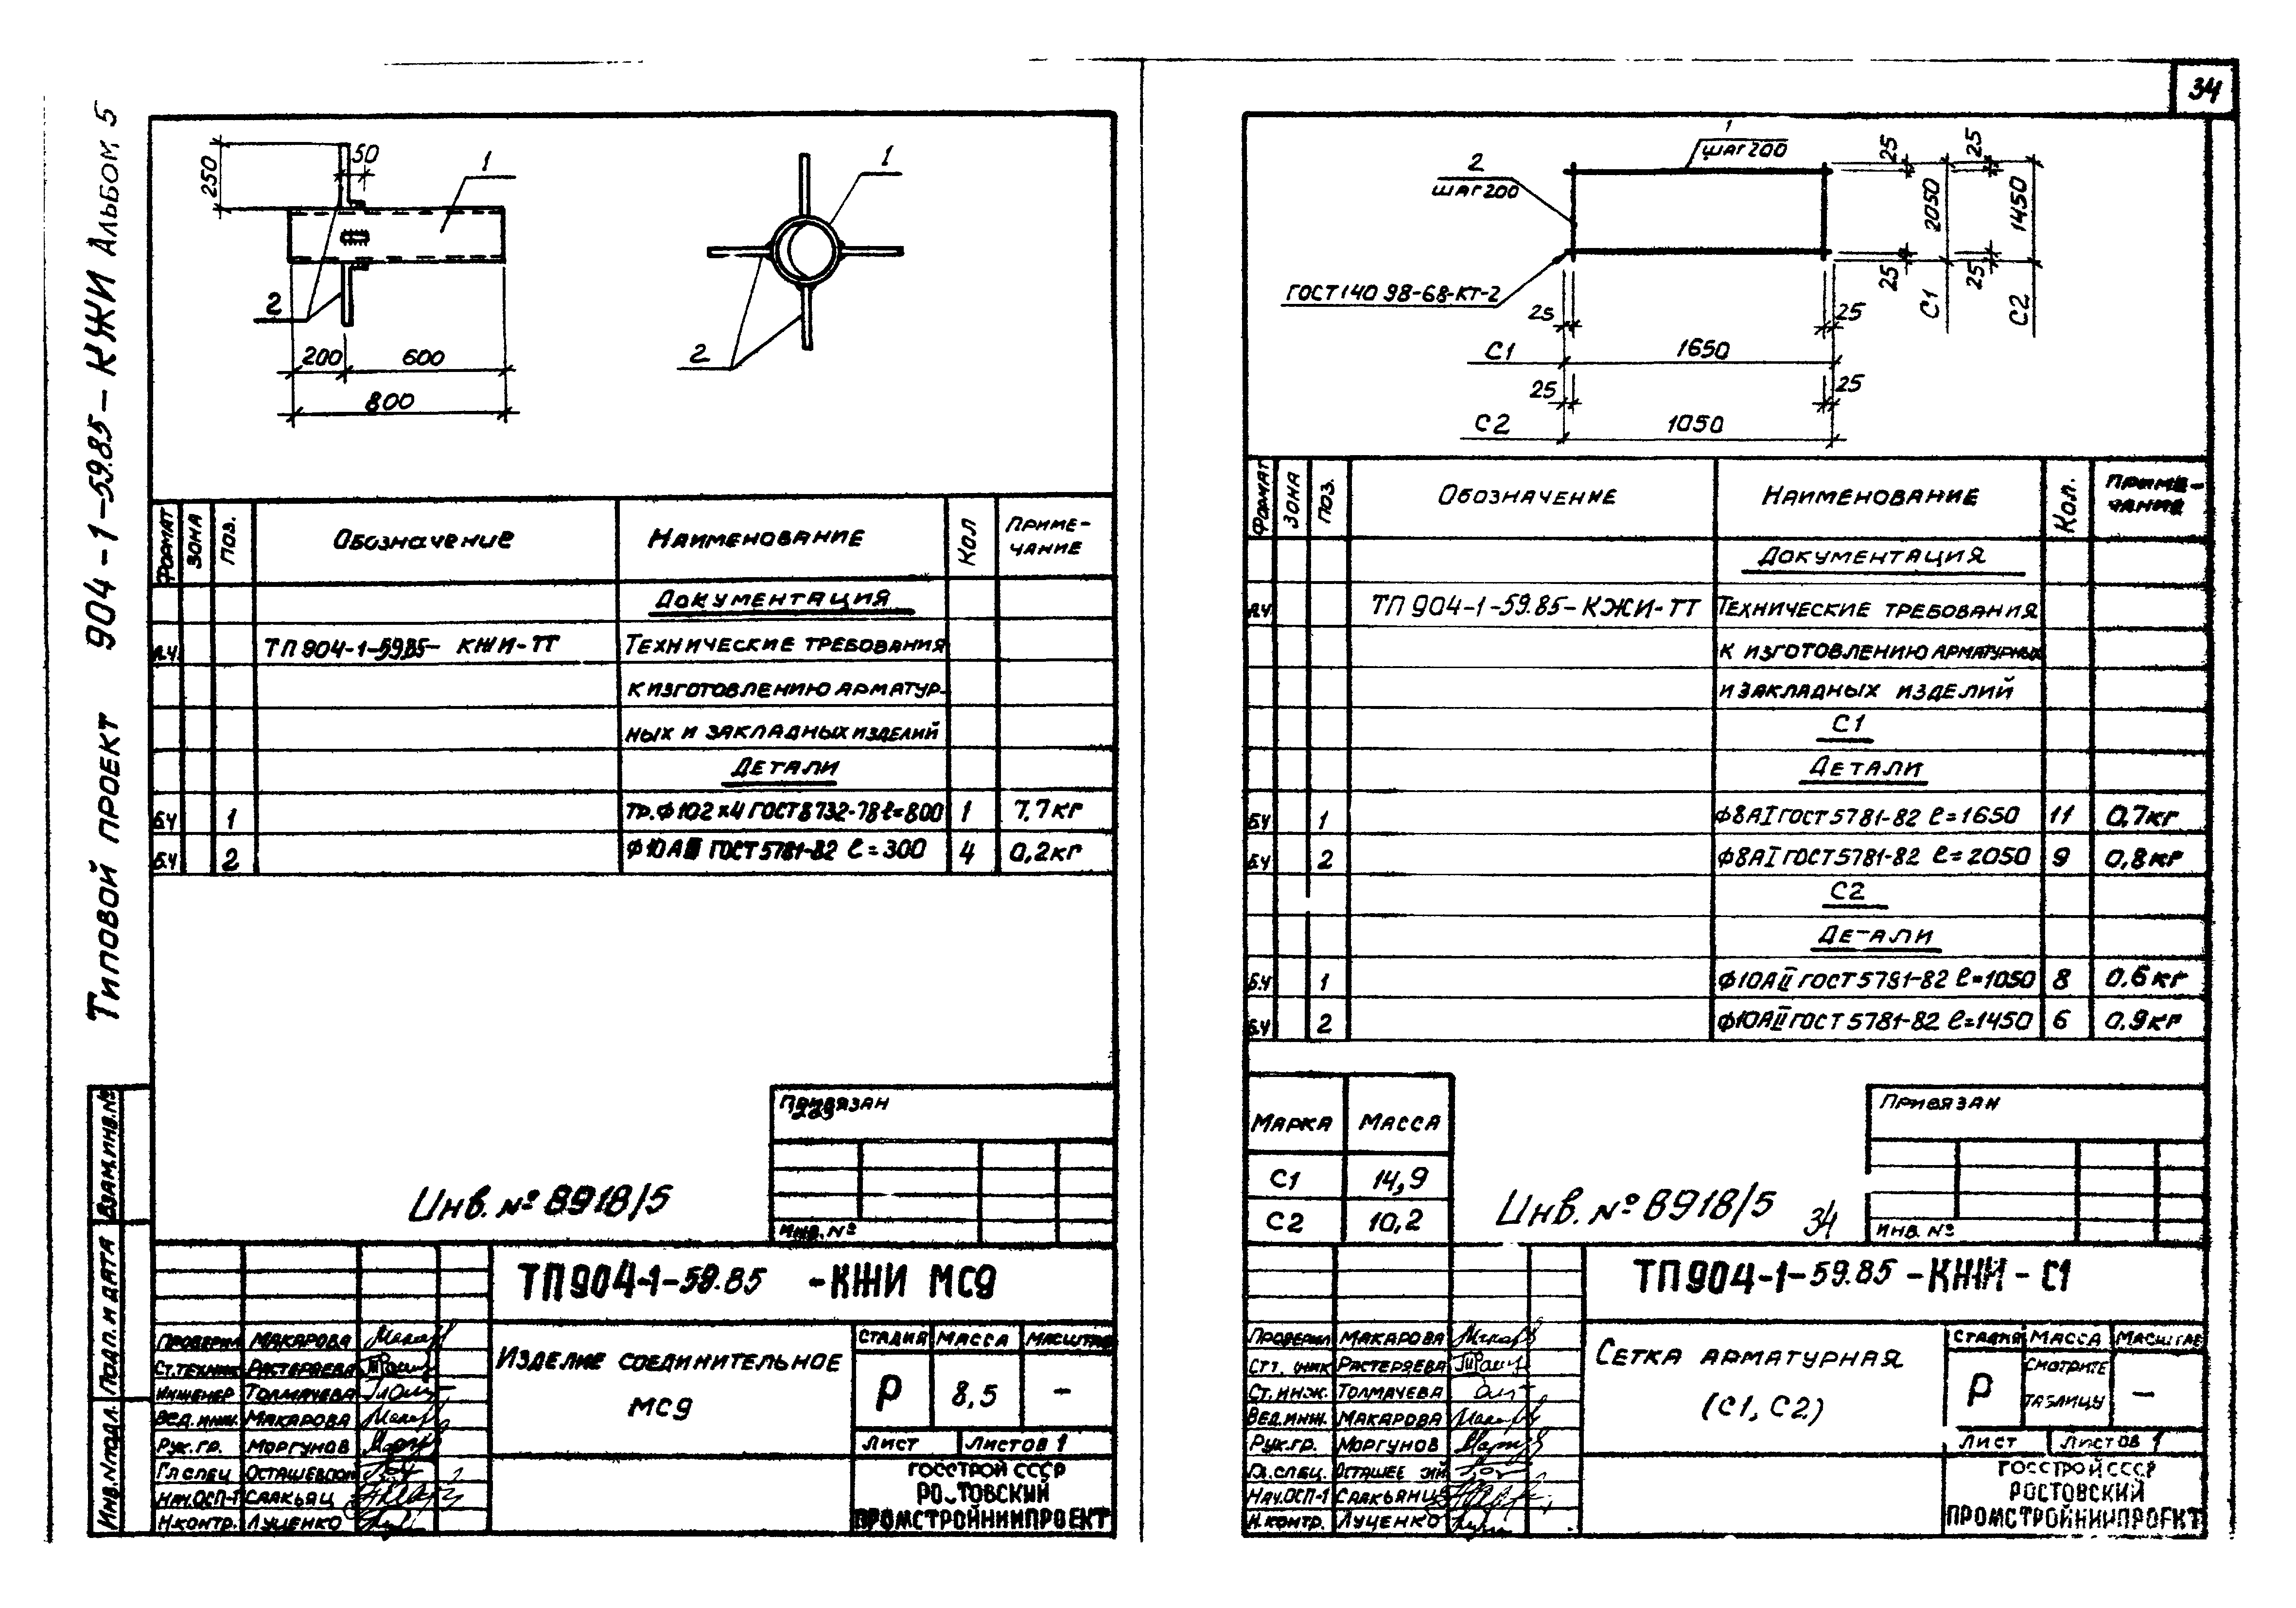 34
Типовой проект 904-1-59.85-КЖИ Альбом 5
250
50
1
2
200
600
800
1
2
Формат
Зона
Поз.
Обозначение
Наименование
Кол
Приме-
чание
Документация
А4 ТП 904-1-59.85- КЖИ-ТТ Технические требования
к изготовлению арматур-
ных и закладных изделий
Детали
БЧ 1 тр.ф102х4 ГОСТ 8732-78 ℓ=800 1 7,7кг
БЧ 2 ф10АIII ГОСТ 5781-82 ℓ=300 4 0,2кг
Привязан
Инв. №
Инв. № 8918/5
Взам.инв.№
Подп. и дата
Инв.№подл.
ТП 904-1-59.85 -КЖИ МС9
Проверил Макарова
Ст.техник Растеряева
Инженер Толмачева
Вед.инж. Макарова
Рук.гр. Моргунов
Гл спец
Нач.ОСП-1 Саакьянц
Н.контр. Луценко
Изделие соединительное
МС9
Стадия Масса Масштаб
Р 8,5 –
Лист Листов 1
Госстрой СССР
Ростовский
Промстройниипроект
1
шаг 200
2
шаг 200
ГОСТ 14098-68-КТ-2
25
25
С1 1650
25
25
С2 1050
25
25
2050
С1
25
25
1450
С2
Формат
Зона
Поз.
Обозначение
Наименование
Кол.
Приме-
чание
Документация
А4 ТП 904-1-59.85-КЖИ-ТТ Технические требования
к изготовлению арматурных
и закладных изделий
С1
Детали
БЧ 1 ф8АI ГОСТ 5781-82 ℓ=1650 11 0,7кг
БЧ 2 ф8АI ГОСТ 5781-82 ℓ=2050 9 0,8кг
С2
Детали
БЧ 1 ф10АII ГОСТ 5781-82 ℓ=1050 8 0.6кг
БЧ 2 ф10АII ГОСТ 5781-82 ℓ=1450 6 0.9кг
Марка Масса
С1 14,9
С2 10,2
Привязан
Инв. №
Инв. № 8918/5 34
ТП 904-1-59.85-КЖИ-С1
Проверил Макарова
Растеряева
Ст.инж. Толмачева
Вед.инж. Макарова
Рук.гр. Моргунов
Гл.спец.
Нач.ОСП-1 Саакьянц
Н.контр. Луценко
Сетка арматурная
(С1, С2)
Стадия Масса Масштаб
Р Смотрите
таблицу –
Лист Листов 1
Госстрой СССР
Ростовский
Промстройниипроект